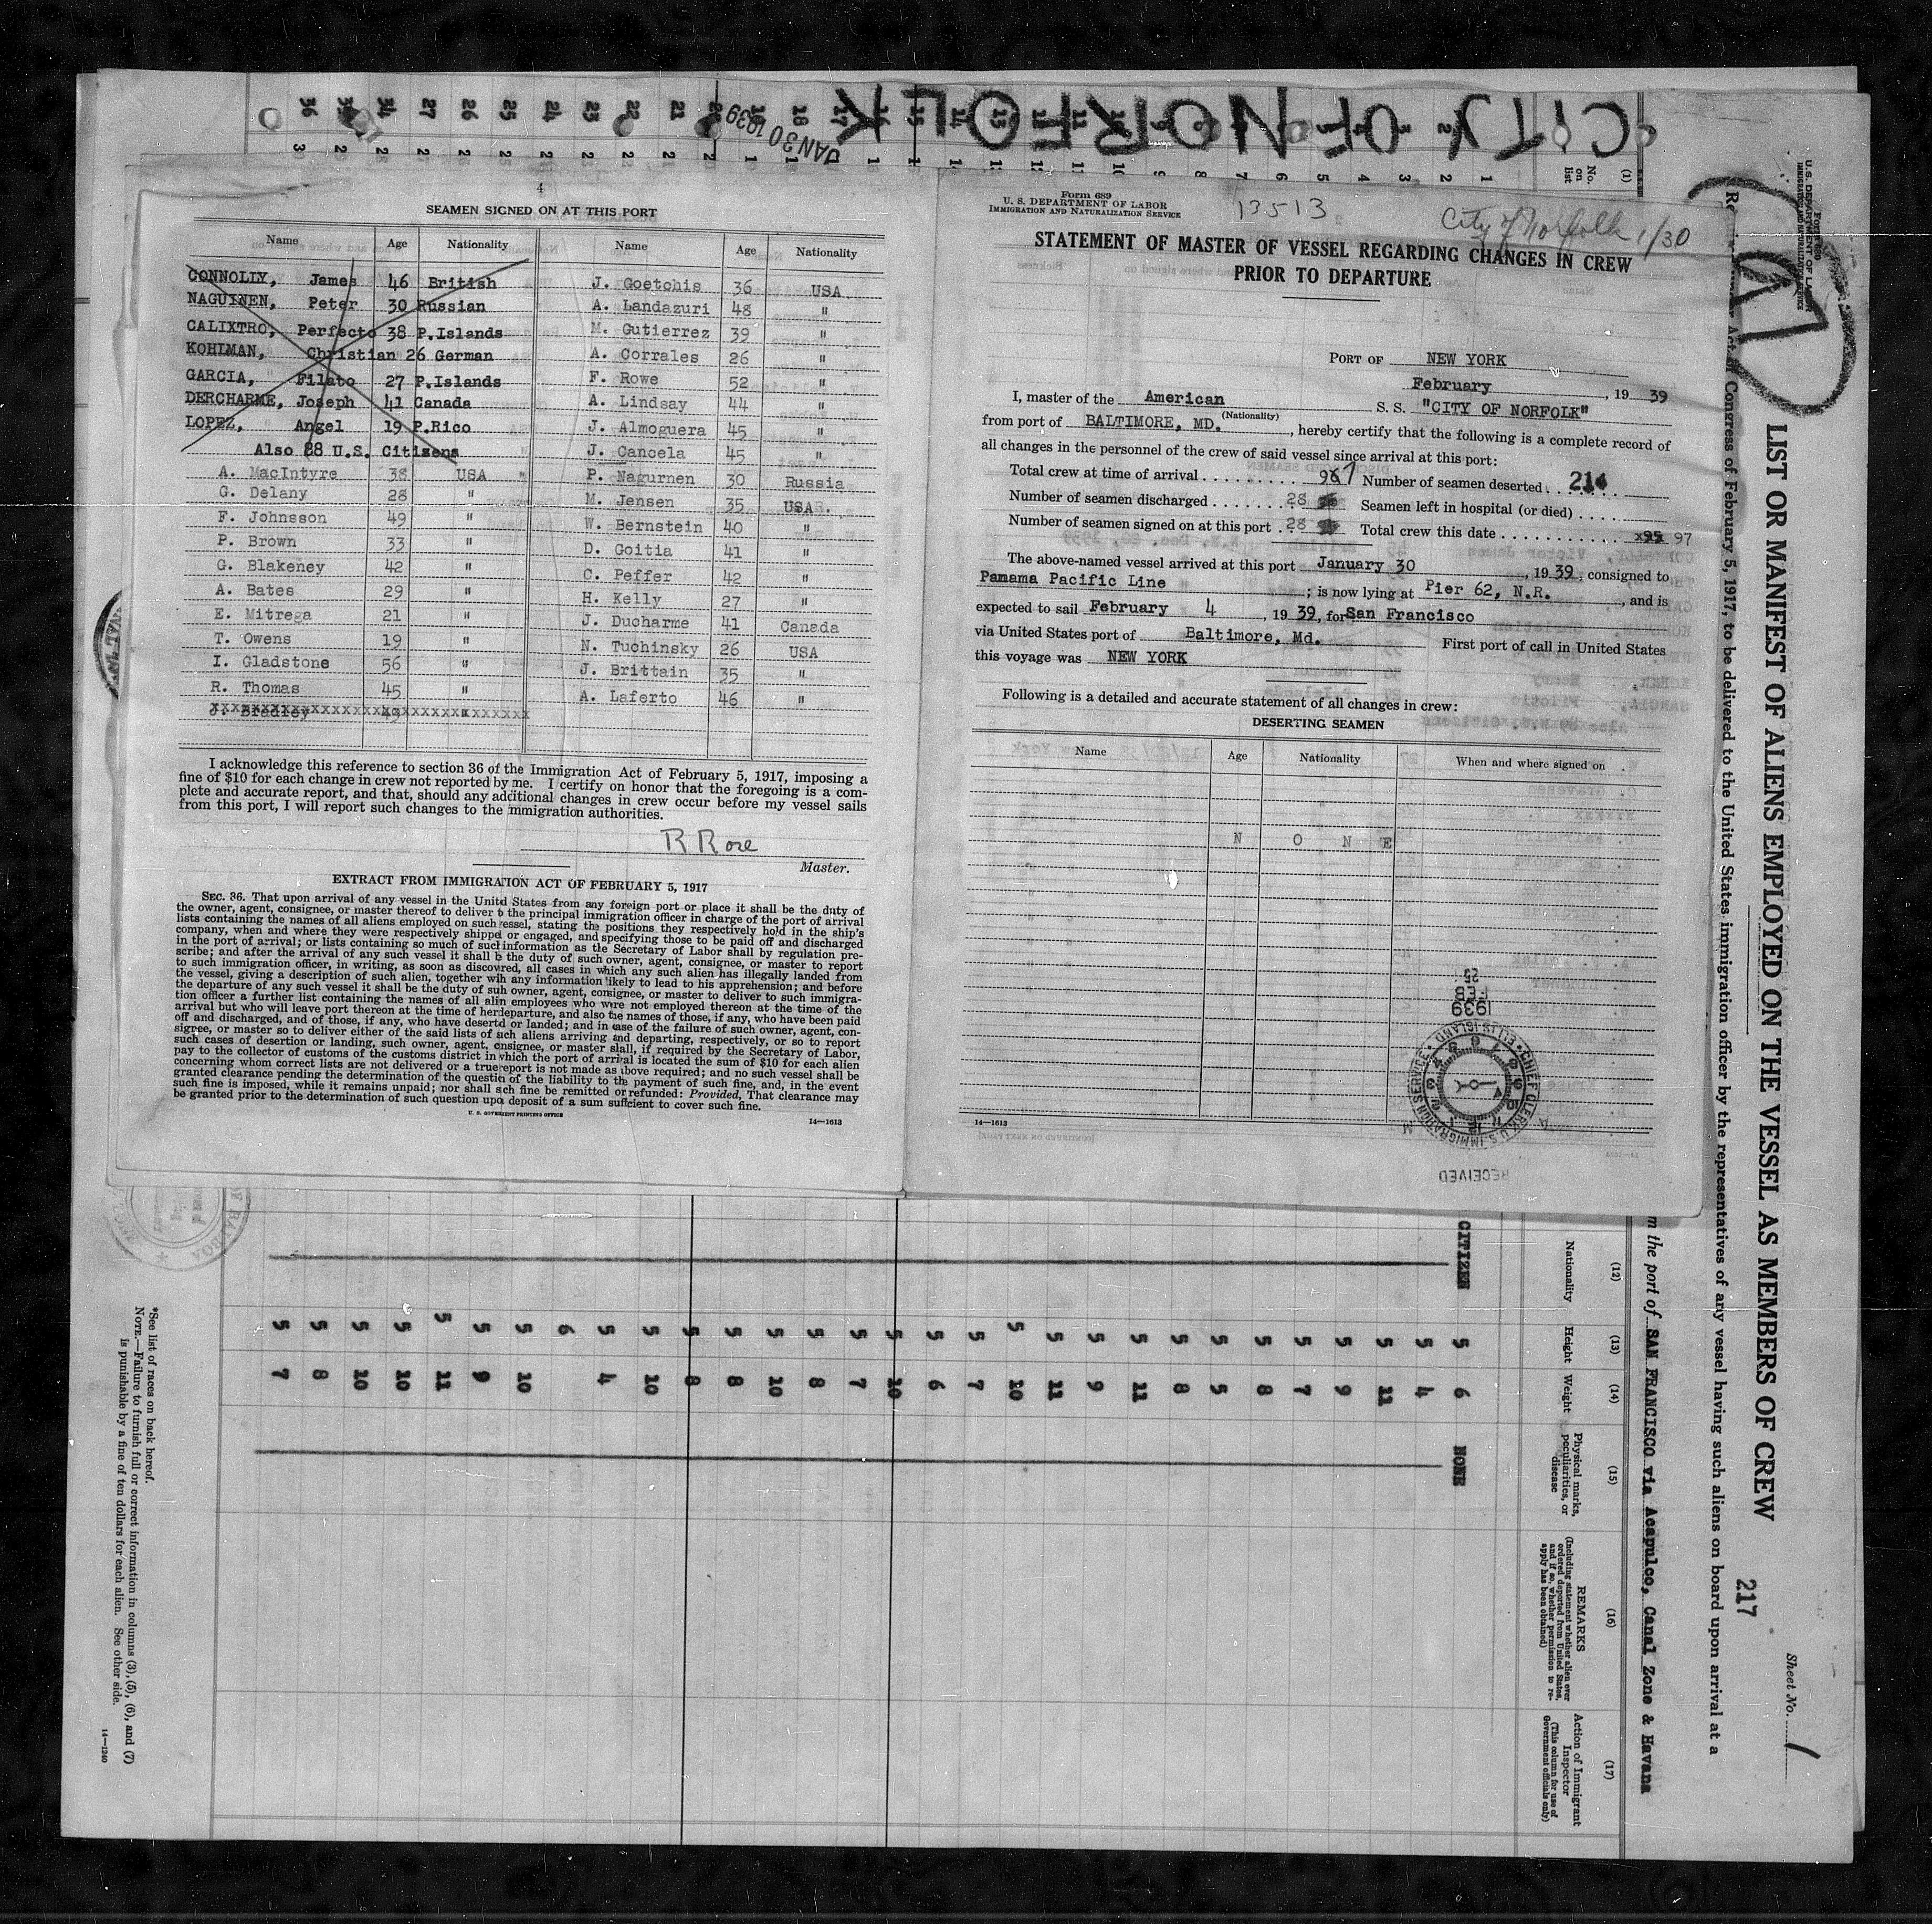 CITY OF NORFOLK
JAN 30 1939
4
SEAMEN SIGNED ON AT THIS PORT
Name Age Nationality Name Age Nationality
CONNOLLY, James 46 British
NAGUINEN, Peter 30 Russian
CALIXTRO, Perfecto 38 P.Islands
KOHIMAN, Christian 26 German
GARCIA, Filato 27 P.Islands
DERCHARME, Joseph 41 Canada
LOPEZ, Angel 19 P.Rico
Also 88 U.S. Citizens
A. MacIntyre 38 USA
G. Delany 28 "
F. Johnsson 49 "
P. Brown 33 "
G. Blakeney 42 "
A. Bates 29 "
E. Mitrega 21 "
T. Owens 19 "
I. Gladstone 56 "
R. Thomas 45 "
J. Bradley 49 "
J. Goetchis 36 USA
A. Landazuri 48 "
M. Gutierrez 39 "
A. Corrales 26 "
F. Rowe 52 "
A. Lindsay 44 "
J. Almoguera 45 "
J. Cancela 45 "
P. Nagurnen 30 Russia
M. Jensen 35 USA.
W. Bernstein 40 "
D. Goitia 41 "
C. Peffer 42 "
H. Kelly 27 "
J. Ducharme 41 Canada
N. Tuchinsky 26 USA
J. Brittain 35 "
A. Laferto 46 "
I acknowledge this reference to section 36 of the Immigration Act of February 5, 1917, imposing a
fine of $10 for each change in crew not reported by me. I certify on honor that the foregoing is a com-
plete and accurate report, and that, should any additional changes in crew occur before my vessel sails
from this port, I will report such changes to the immigration authorities.
R Rose
Master.
EXTRACT FROM IMMIGRATION ACT OF FEBRUARY 5, 1917
SEC. 36. That upon arrival of any vessel in the United States from any foreign port or place it shall be the duty of
the owner, agent, consignee, or master thereof to deliver to the principal immigration officer in charge of the port of arrival
lists containing the names of all aliens employed on such vessel, stating the positions they respectively hold in the ship's
company, when and where they were respectively shipped or engaged, and specifying those to be paid off and discharged
in the port of arrival; or lists containing so much of such information as the Secretary of Labor shall by regulation pre-
scribe; and after the arrival of any such vessel it shall be the duty of such owner, agent, consignee, or master to report
to such immigration officer, in writing, as soon as discovered, all cases in which any such alien has illegally landed from
the vessel, giving a description of such alien, together with any information likely to lead to his apprehension; and before
the departure of any such vessel it shall be the duty of such owner, agent, consignee, or master to deliver to such immigra-
tion officer a further list containing the names of all alien employees who were not employed thereon at the time of the
arrival but who will leave port thereon at the time of her departure, and also the names of those, if any, who have been paid
off and discharged, and of those, if any, who have deserted or landed; and in case of the failure of such owner, agent, con-
signee, or master so to deliver either of the said lists of such aliens arriving and departing, respectively, or so to report
such cases of desertion or landing, such owner, agent, consignee, or master shall, if required by the Secretary of Labor,
pay to the collector of customs of the customs district in which the port of arrival is located the sum of $10 for each alien
concerning whom correct lists are not delivered or a true report is not made as above required; and no such vessel shall be
granted clearance pending the determination of the question of the liability to the payment of such fine, and, in the event
such fine is imposed, while it remains unpaid; nor shall such fine be remitted or refunded: Provided, That clearance may
be granted prior to the determination of such question upon deposit of a sum sufficient to cover such fine.
U. S. GOVERNMENT PRINTING OFFICE
14—1613
Form 689
U. S. DEPARTMENT OF LABOR
IMMIGRATION AND NATURALIZATION SERVICE
13513
City of Norfolk 1/30
STATEMENT OF MASTER OF VESSEL REGARDING CHANGES IN CREW
PRIOR TO DEPARTURE
PORT OF NEW YORK
February, 1939
I, master of the American S. S. "CITY OF NORFOLK"
(Nationality)
from port of BALTIMORE, MD., hereby certify that the following is a complete record of
all changes in the personnel of the crew of said vessel since arrival at this port:
Total crew at time of arrival 967 Number of seamen deserted 214
Number of seamen discharged 28 Seamen left in hospital (or died)
Number of seamen signed on at this port 28 Total crew this date x95 97
The above-named vessel arrived at this port January 30, 1939, consigned to
Panama Pacific Line; is now lying at Pier 62, N.R., and is
expected to sail February 4, 1939, for San Francisco
via United States port of Baltimore, Md. First port of call in United States
this voyage was NEW YORK
Following is a detailed and accurate statement of all changes in crew:
DESERTING SEAMEN
Name Age Nationality When and where signed on
N O N E
1939
FEB
25
CHIEF CLERK U.S. IMMIGRATION SERVICE ELLIS ISLAND
RECEIVED
14—1613
U.S. DEPARTMENT OF LABOR
IMMIGRATION AND NATURALIZATION SERVICE
LIST OR MANIFEST OF ALIENS EMPLOYED ON THE VESSEL AS MEMBERS OF CREW
217
Sheet No. 1
Act of Congress of February 5, 1917, to be delivered to the United States immigration officer by the representatives of any vessel having such aliens on board upon arrival at a
m the port of SAN FRANCISCO via Acapulco, Canal Zone & Havana
(1) No. on list
(12) Nationality
(13) Height
(14) Weight
(15) Physical marks, peculiarities, or disease
(16) REMARKS
(Including statement whether alien ever ordered deported from United States, and if so, whether permission to re-apply has been obtained)
(17) Action of Immigrant Inspector
(This column for use of Government officials only)
CITIZEN
NONE
5 6
5 4
5 11
5 9
5 7
5 8
5 5
5 8
5 11
5 9
5 11
5 10
5 7
5 6
5 10
5 7
5 8
5 10
5 8
5 8
5 10
5 4
6
5 10
5 9
5 11
5 10
5 10
5 8
5 7
*See list of races on back hereof.
NOTE.—Failure to furnish full or correct information in columns (3), (5), (6), and (7)
is punishable by a fine of ten dollars for each alien. See other side.
14—1240